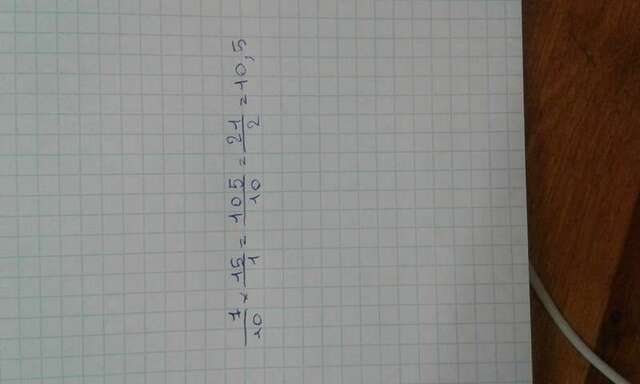 7/10 × 15/1 = 105/10 = 21/2 = 10,5